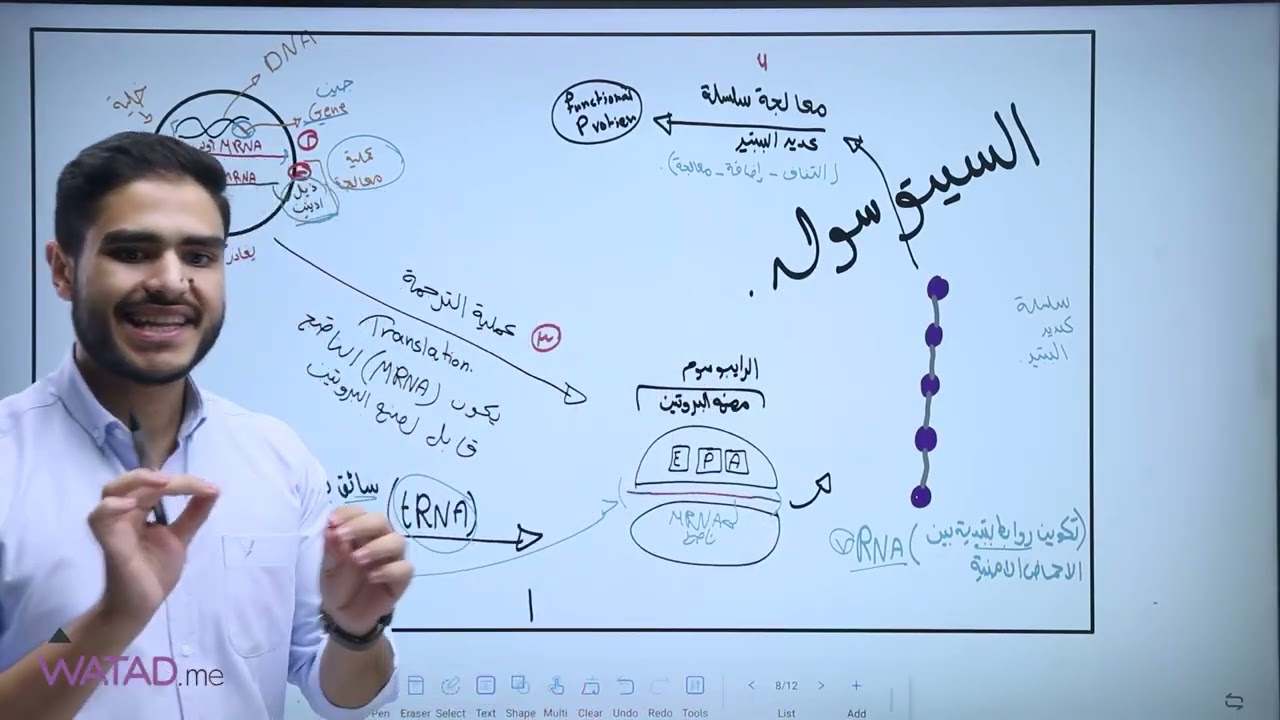 DNA
خلية
جين
Gene
أولي MRNA
١
MRNA
ذيل
ادينين
عملية
معالجة
يغادر
عملية الترجمة ٣
Translation.
يكون (MRNA) الناضج
قابل لصنع البروتين
سائق
(tRNA)
٤
معالجة سلسلة
عديد الببتيد
(التفاف - إضافة - معالجة)
Functional
Protien
السيتوسول.
سلسلة
عديد
الببتيد.
الرايبوسوم
مصنع البروتين
E P A
MRNA
ناضج
rRNA (تكوين روابط ببتيدية بين
الاحماض الامينية
WATAD.me
Pen Eraser Select Text Shape Multi Clear Undo Redo Tools
< 8/12 > +
List Add